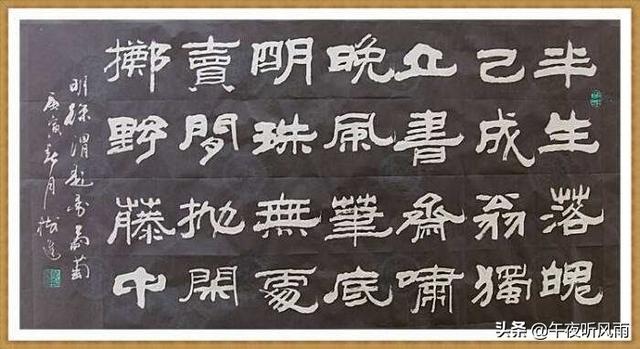 半生落魄
已成翁獨
立書齋嘯
晚風筆底
明珠無處
賣閒抛閑
擲野藤中
明徐渭題畫葡萄
庚寅春月
头条 @午夜听风雨